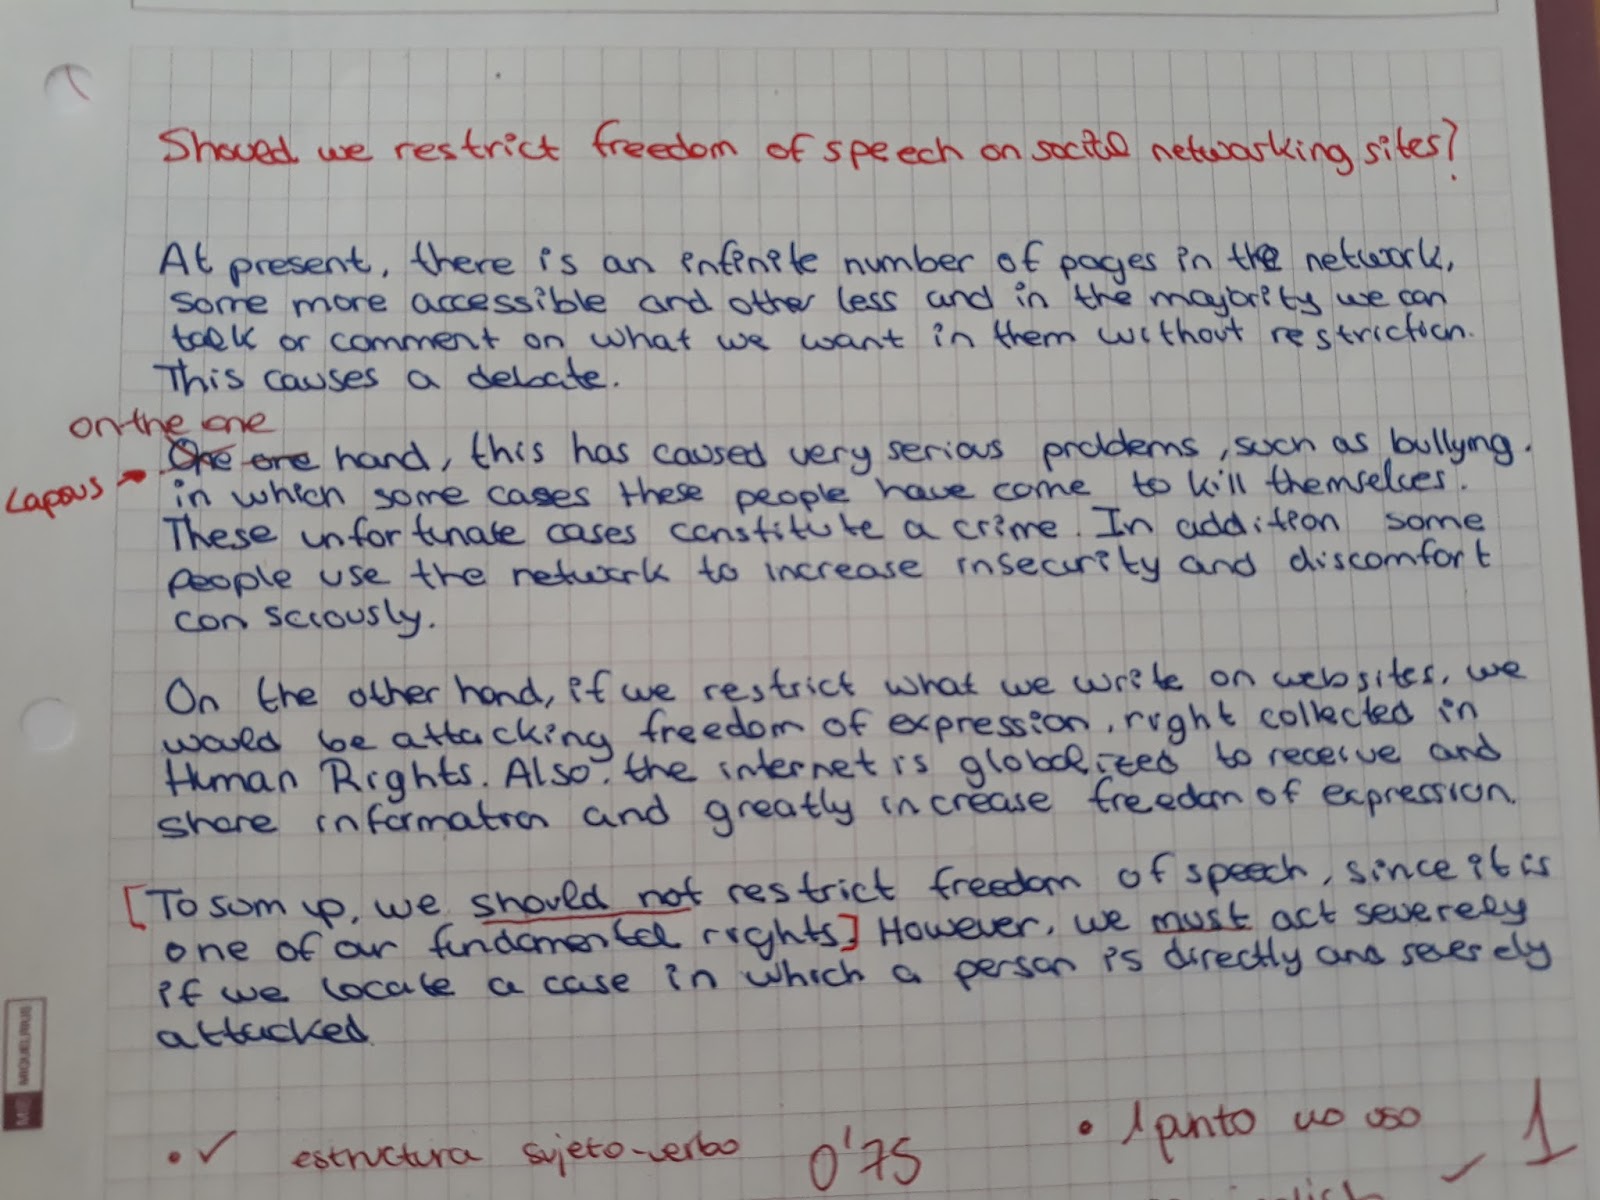 Should we restrict freedom of speech on social networking sites?
At present, there is an infinite number of pages in the network,
some more accessible and other less and in the majority we can
talk or comment on what we want in them without restriction.
This causes a debate.
on the one
One one hand, this has caused very serious problems, such as bullying.
Lapsus
in which some cases these people have come to kill themselves.
These unfortunate cases constitute a crime. In addition some
people use the network to increase insecurity and discomfort
consciously.
On the other hand, if we restrict what we write on websites, we
would be attacking freedom of expression, right collected in
Human Rights. Also, the internet is globalized to receive and
share information and greatly increase freedom of expression.
[To sum up, we should not restrict freedom of speech, since it is
one of our fundamental rights] However, we must act severely
if we locate a case in which a person is directly and severely
attacked.
MIQUELRIUS
• ✓ estructura sujeto-verbo 0'75
• 1 punto no uso ✓ 1